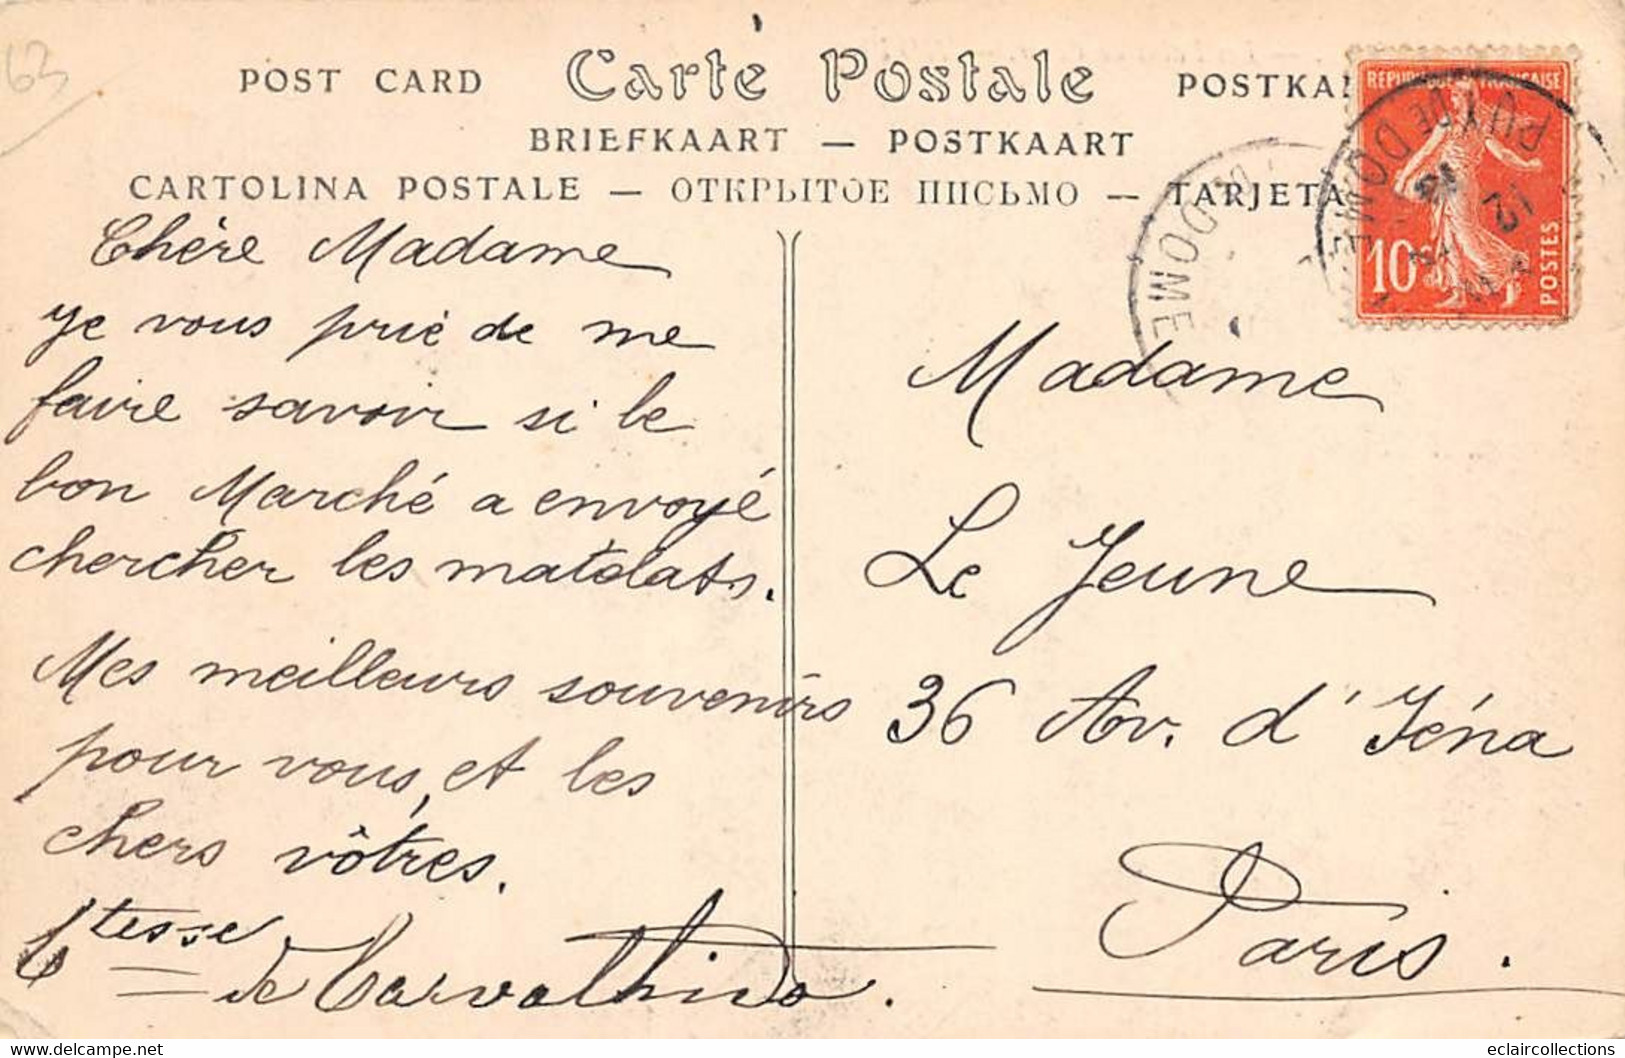 63
POST CARD Carte Postale POSTKA
BRIEFKAART — POSTKAART
CARTOLINA POSTALE — ОТКРЫТОЕ ПИСЬМО — TARJETA
REPUBLIQUE FRANÇAISE
10c
POSTES
PUY DE DOME
12
DOME
Chère Madame
je vous prie de me
faire savoir si le
bon Marché a envoyé
chercher les matelats.
Mes meilleurs souvenirs
pour vous, et les
chers vôtres.
Ctesse de Carvalhido.
Madame
Le Jeune
36 Av. d'Iéna
Paris.
eclaircollections